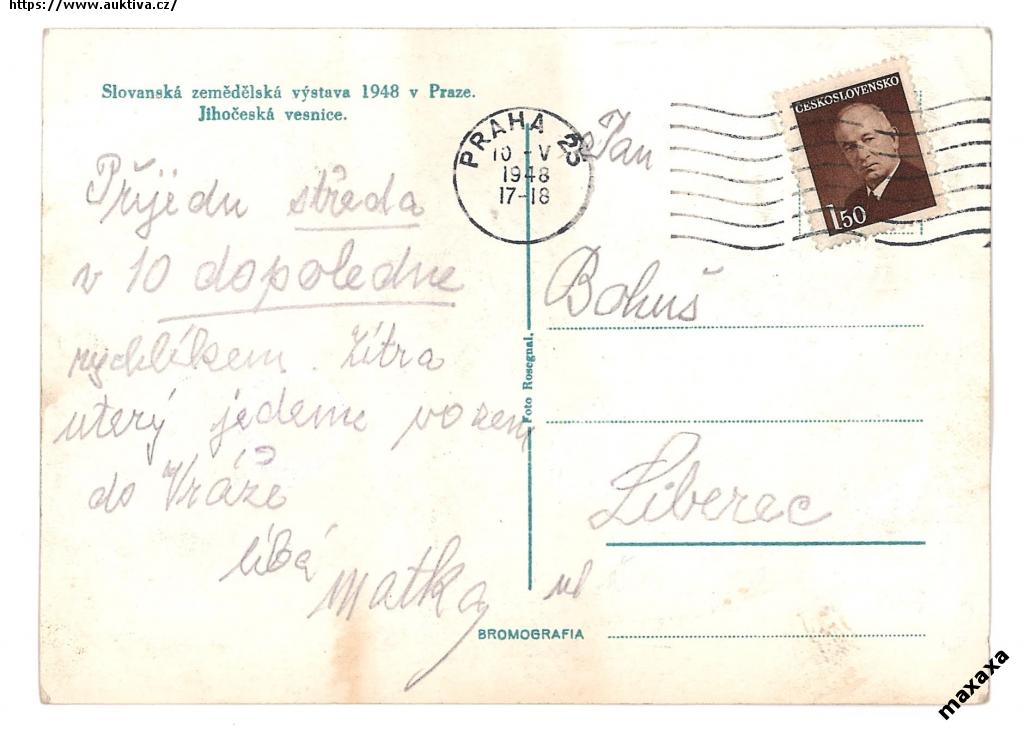 https://www.auktiva.cz/
Slovanská zemědělská výstava 1948 v Praze.
Jihočeská vesnice.
Přijedu středa
v 10 dopoledne
rychlíkem. Zítra
uterý jedeme vozem
do Vráže
líbá
matka
PRAHA 25
10 -V
1948
17-18
ČESKOSLOVENSKO
1 50
Jan
Bohuš
Liberec
ul
Foto Rosegnal.
BROMOGRAFIA
maxaxa